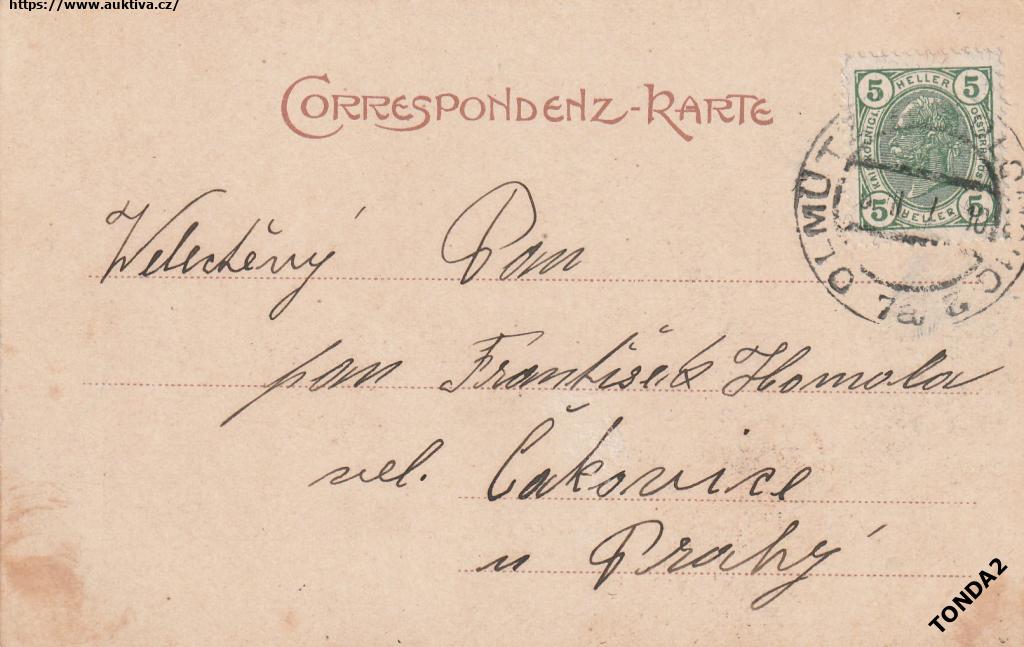 https://www.auktiva.cz/
CORRESPONDENZ-KARTE
5 HELLER 5
5 HELLER 5
OLMÜTZ
7a
Velectěný Pan
pan František Homola
vel. Čakovice
u Prahý
TONDA2